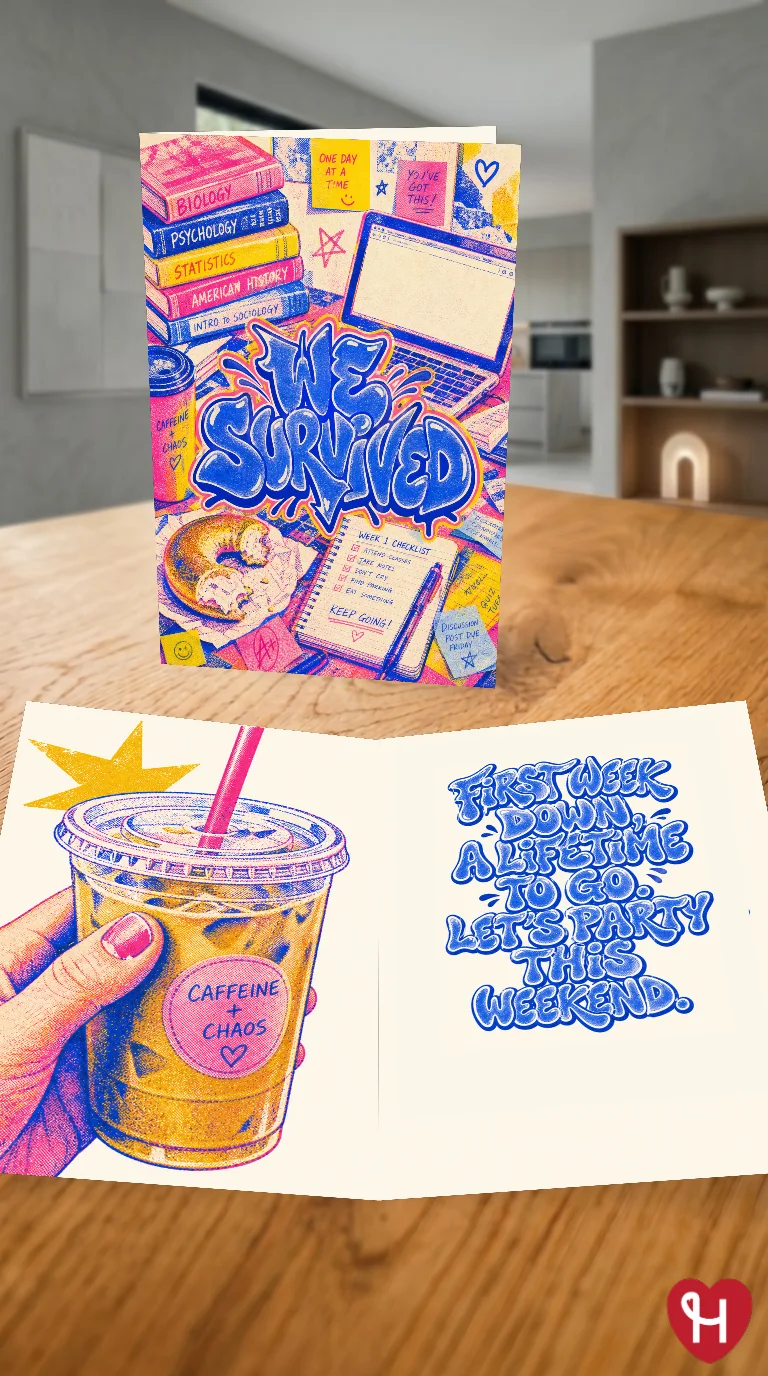 BIOLOGY
PSYCHOLOGY
STATISTICS
AMERICAN HISTORY
INTRO to SOCIOLOGY
ONE DAY
AT A
TIME
YOU'VE
GOT
THIS!
CAFFEINE
+
CHAOS
WE
SURVIVED
WEEK 1 CHECKLIST
ATTEND CLASSES
TAKE NOTES
DON'T CRY
FIND PARKING
EAT SOMETHING
KEEP GOING!
A+
QUIZ
DISCUSSION
POST DUE
FRIDAY
CAFFEINE
+
CHAOS
FIRST WEEK
DOWN,
A LIFETIME
TO GO.
LET'S PARTY
THIS
WEEKEND.
H